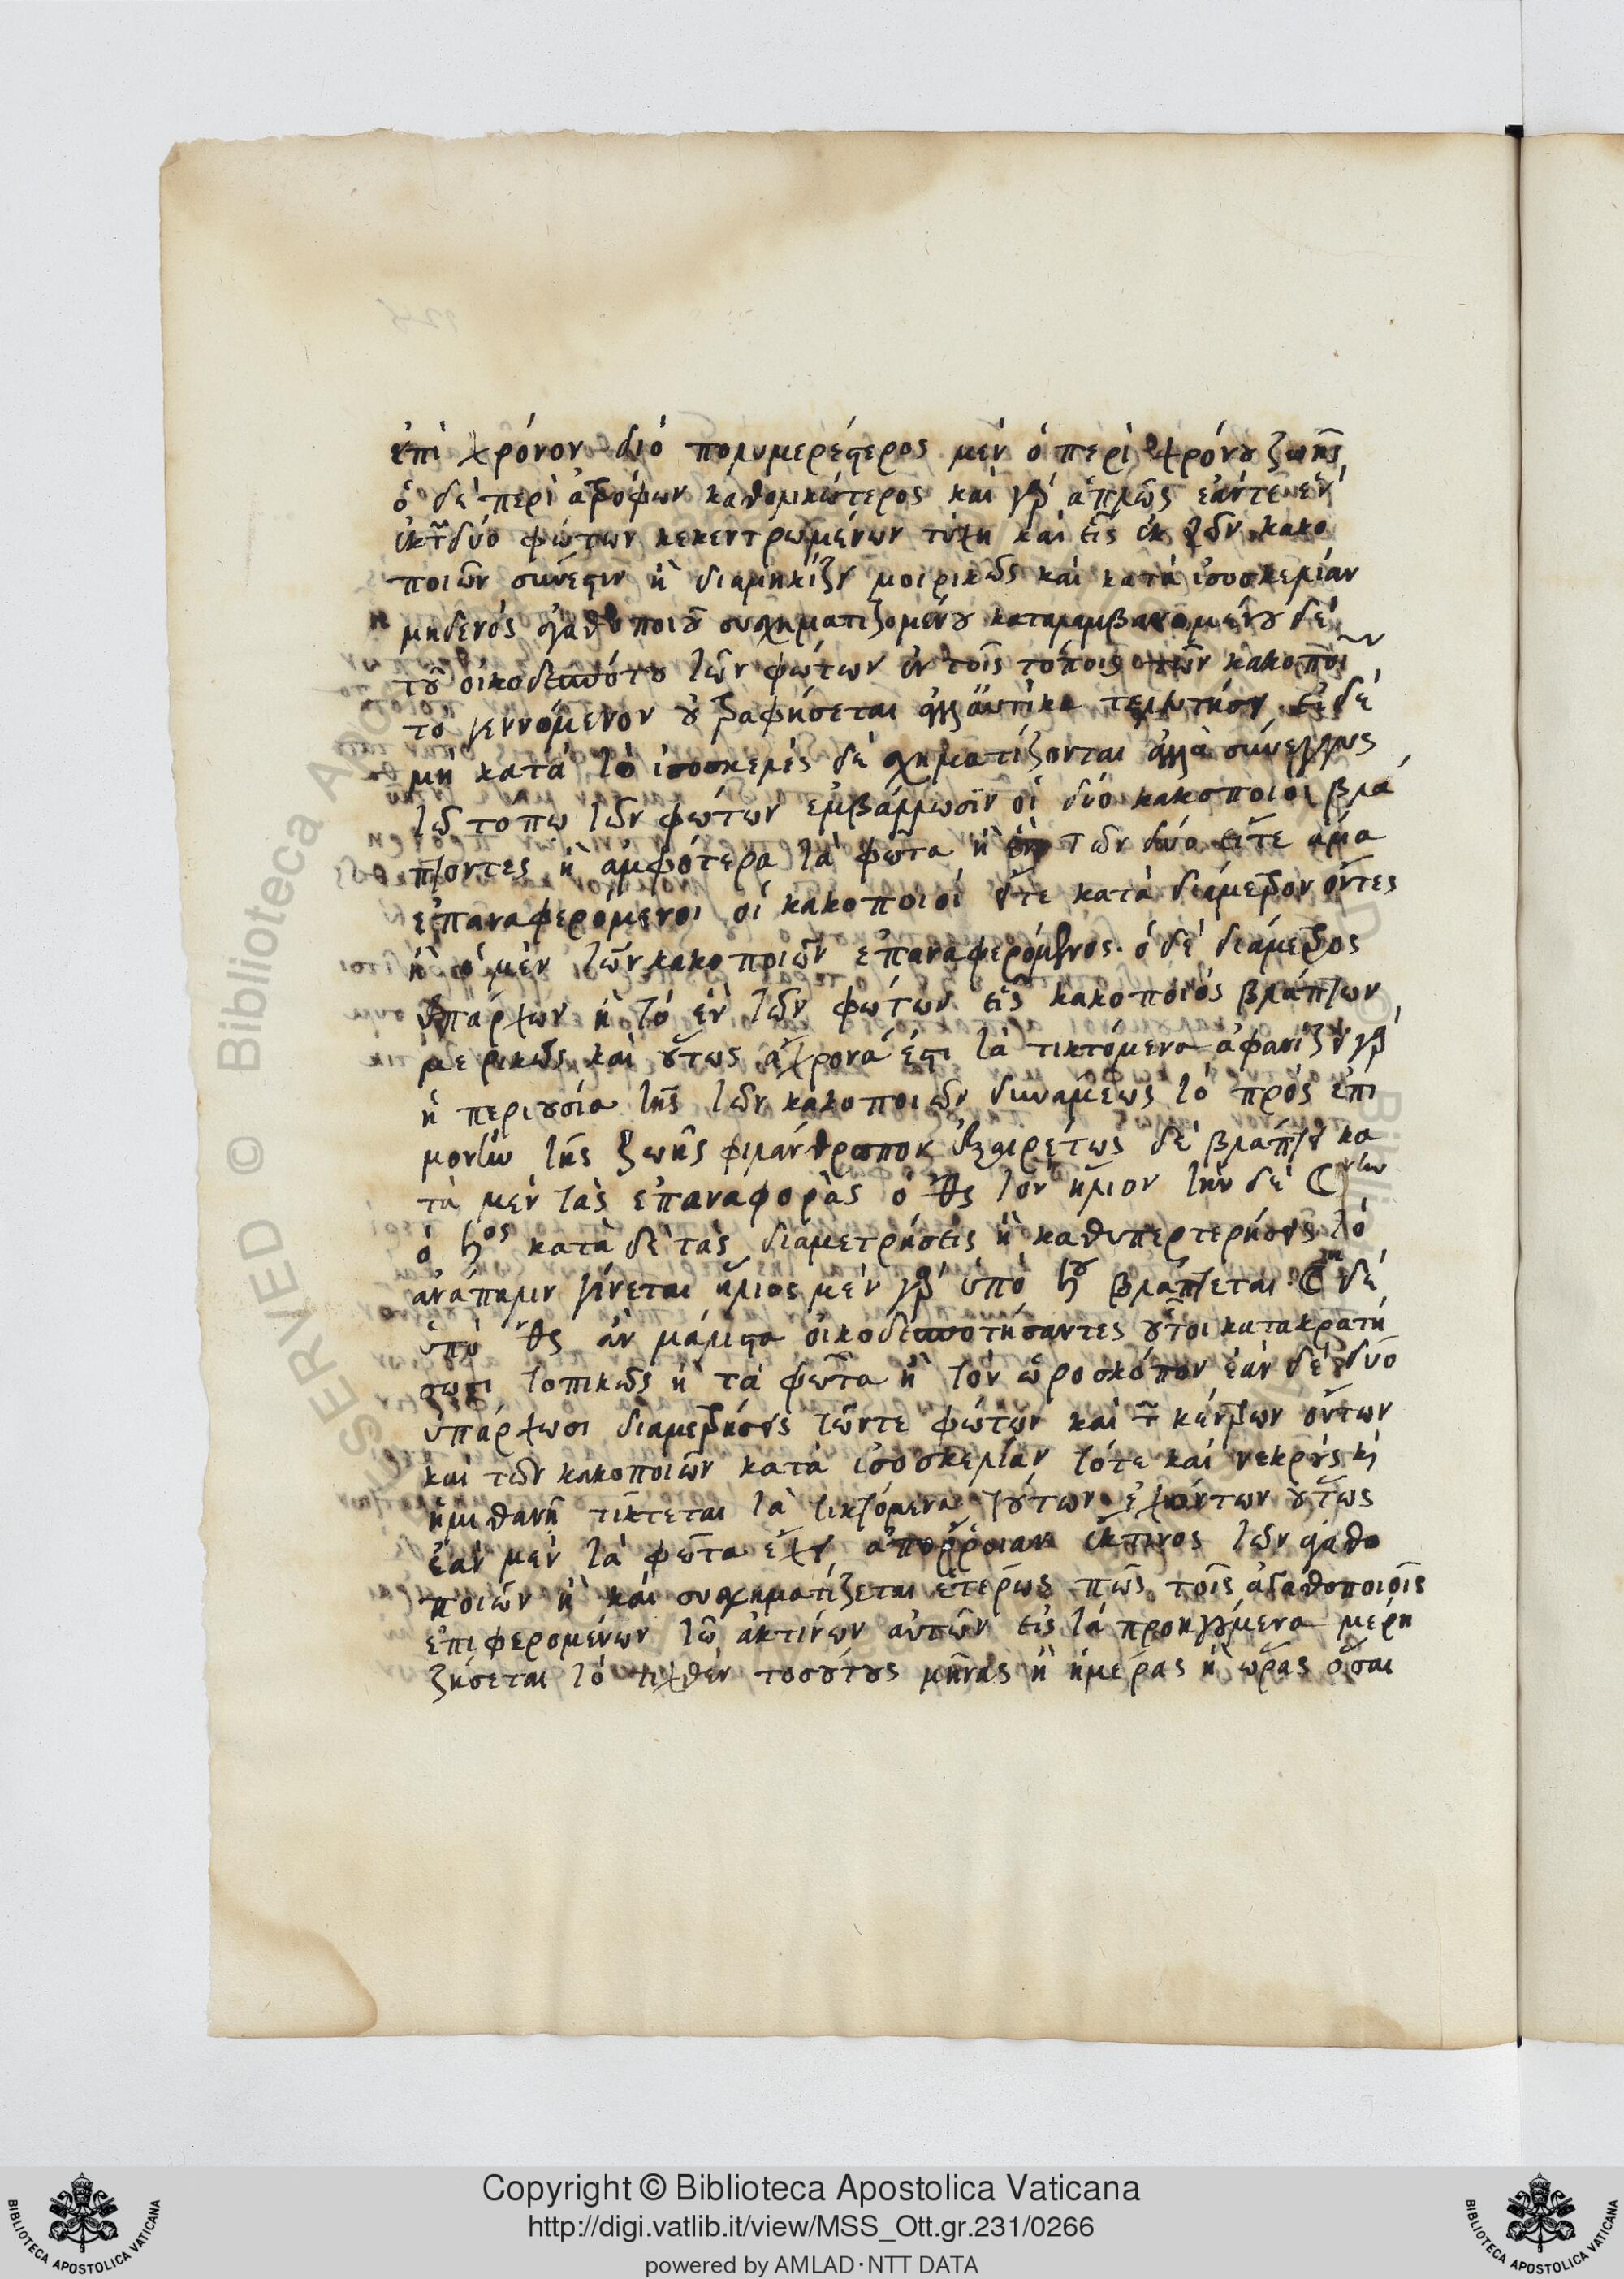 ἐπὶ χρόνον διό πολυμερέστερος μέν ὁ περὶ χρόνου ζωῆς
ὁ δὲ περὶ ἀτρόφων καθολικώτερος καὶ γὰρ ἁπλῶς ἐάντε ἓν
ἐκ τῶν δύο φώτων κεκεντρωμένων τύχη καὶ εἷς ἐκ τῶν κακο
ποιῶν συνέστιν ἢ διαμηκίζει μοιρικῶς καὶ κατὰ ἰσοσκελίαν
μηδενός ἀγαθοποιοῦ συσχηματιζομένου καταλαμβανομένου δὲ
τοῦ οἰκοδεσπότου τῶν φώτων ἐν τοῖς τόποις τῶν κακοποι
τὸ γεννόμενον οὐ τραφήσεται ἀλλ᾽ αὐτίκα τελευτήσει εἰ δὲ
μὴ κατὰ τὸ ἰσοσκελές δὲ σχηματίζονται ἀλλὰ σύνεγγυς
τῶ τόπω τῶν φώτων ἐμβάλλωσϊν οἱ δύο κακοποιοι βλά
πτοντες ἢ ἀμφότερα τὰ φῶτα ἢ ἓν τῶν δύο εἴτε ἅμα
ἐπαναφερόμενοι οἱ κακοποιοί εἴτε κατὰ διάμετρον ὄντες
ἢ ὁ μὲν τῶν κακοποιῶν ἐπαναφερόμενος ὁ δὲ διάμετρος
ὑπάρχων ἢ τὸ ἓν τῶν φώτων εἷς κακοποιός βλάπτων
μερικῶς καὶ οὕτως ἄχρονά ἐστι τὰ τικτόμενα ἀφανίζει γὰρ
ἡ περιουσία τῆς τῶν κακοποιῶν δυνάμεως τὸ πρός ἐπι
μονὴν τῆς ζωῆς φιλάνθρωπον ἐξαιρέτως δὲ βλάπτει κα
τὰ μὲν τὰς ἐπαναφορὰς ὁ ἄρης τὸν ἥλιον τὴν δὲ ☾ νην
ὁ ♄ος κατὰ δὲ τὰς διαμετρήσεις ἢ καθυπερτερήσεις τὸ
ἀνάπαλιν γίνεται ἥλιος μὲν γὰρ ὑπὸ ♄ου βλάπτεται ☾νη δὲ
ὑπὸ ἄρεως ἂν μάλιστα οἰκοδεσποτήσαντες οὗτοι κατακρατή
σωσι τοπικῶς ἢ τὰ φῶτα ἢ τὸν ὡροσκόπον ἐὰν δὲ δύο
ὑπάρχωσι διαμετρήσεις τῶντε φώτων καὶ τῶν κέντρων ὄντων
καὶ τῶν κακοποιῶν κατὰ ἰσοσκελίαν τότε καὶ νεκροὺς καὶ
ἡμιθανῆ τίκτεται τὰ τικτόμενα τούτων ἐχόντων οὕτως
ἐὰν μὲν τὰ φῶτα ἔχει ἀπόρροιαν ἔκτινος τῶν ἀγαθο
ποιῶν ἢ καὶ συσχηματίζεται ἑτέρως πως τοῖς ἀγαθοποιοῖς
ἐπιφερομένων τῶ ἀκτίνων αὐτῶν εἰς τὰ προηγούμενα μέρη
ζήσεται τὸ τεχθὲν τοσούτους μῆνας ἢ ἡμέρας ἢ ὥρας ὅσαι
Copyright © Biblioteca Apostolica Vaticana
http://digi.vatlib.it/view/MSS_Ott.gr.231/0266
powered by AMLAD·NTT DATA
BIBLIOTECA APOSTOLICA VATICANA
BIBLIOTECA APOSTOLICA VATICANA